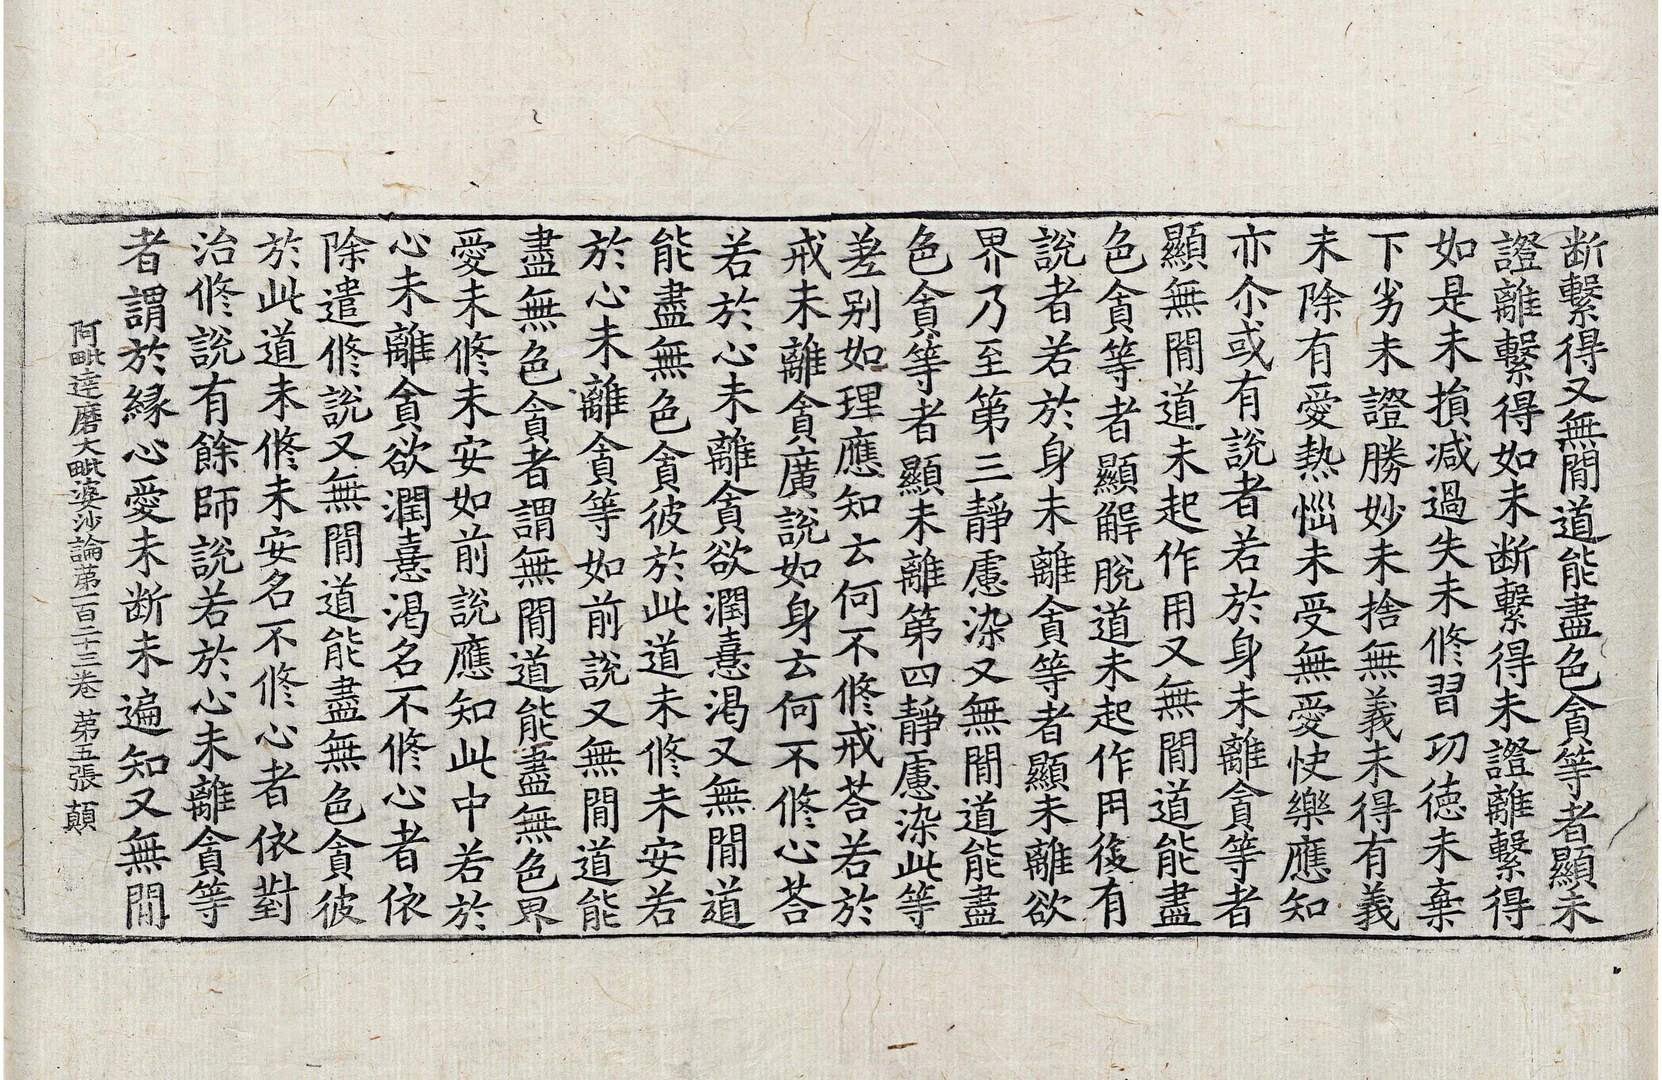 断繫得又無間道能盡色貪等者顯未
證離繫得如未断繫得未證離繫得
如是未損减過失未修習功徳未棄
下劣未證勝妙未捨無義未得有義
未除有愛熱惱未受無愛快樂應知
亦尒或有說者若於身未離貪等者
顯無間道未起作用又無間道能盡
色貪等者顯解脫道未起作用後有
說者若於身未離貪等者顯未離欲
界乃至第三靜慮染又無間道能盡
色貪等者顯未離第四靜慮染此等
差别如理應知云何不修戒荅若於
戒未離貪廣說如身云何不修心荅
若於心未離貪欲潤憙渴又無間道
能盡無色貪彼於此道未修未安若
於心未離貪等如前說又無間道能
盡無色貪者謂無間道能盡無色界
愛未修未安如前說應知此中若於
心未離貪欲潤憙渴名不修心者依
除遣修說又無間道能盡無色貪彼
於此道未修未安名不修心者依對
治修說有餘師說若於心未離貪等
者謂於緣心愛未断未遍知又無間
阿毗達磨大毗婆沙論苐一百二十三卷 苐五張 顛